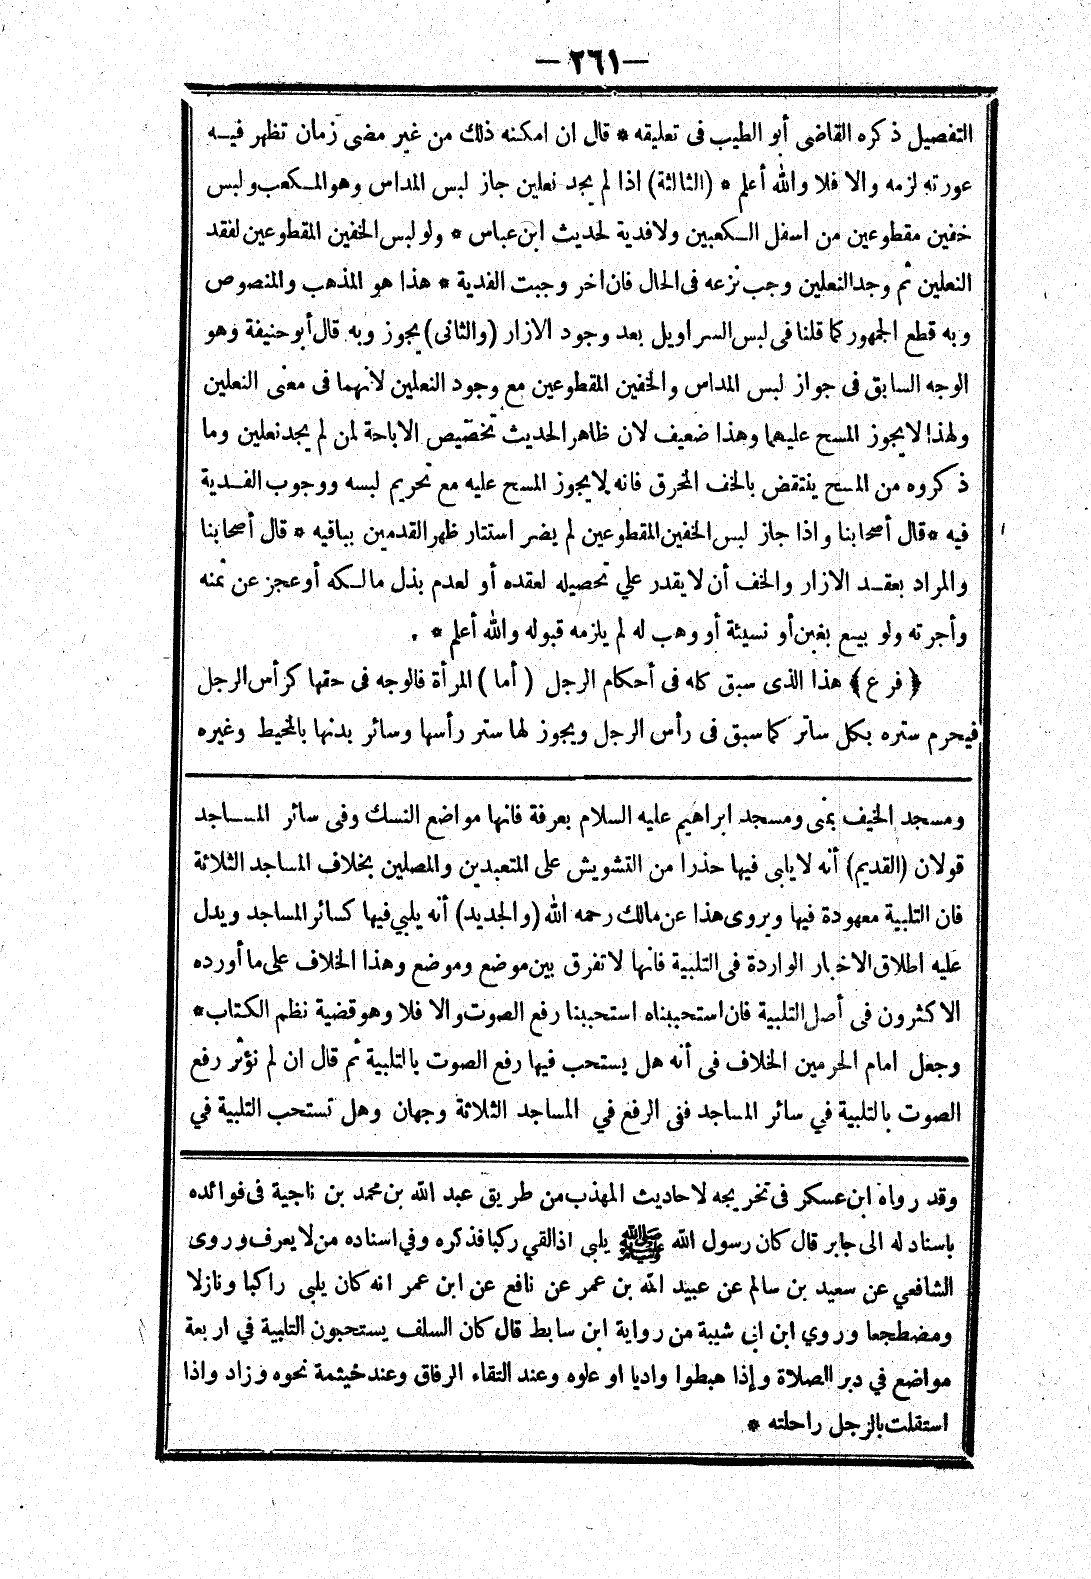 — ٢٦١ —
التفصيل ذكره القاضى أبو الطيب فى تعليقه * قال ان امكنه ذلك من غير مضى زمان تظهر فيه
عورته لزمه والا فلا والله أعلم * (الثالثة) اذا لم يجد نعلين جاز لبس المداس وهو المكعب ولبس
خفين مقطوعين من اسفل الكعبين ولا فدية لحديث ابن عباس * ولو لبس الخفين المقطوعين لفقد
النعلين ثم وجد النعلين وجب نزعه فى الحال فان اخر وجبت الفدية * هذا هو المذهب والمنصوص
وبه قطع الجمهور كما قلنا فى لبس السراويل بعد وجود الازار (والثانى) يجوز وبه قال أبو حنيفة وهو
الوجه السابق فى جواز لبس المداس والخفين المقطوعين مع وجود النعلين لانهما فى معنى النعلين
ولهذا لا يجوز المسح عليهما وهذا ضعيف لان ظاهر الحديث تخصيص الاباحة لمن لم يجد نعلين وما
ذكروه من المسح ينتقض بالخف المخرق فانه لا يجوز المسح عليه مع تحريم لبسه ووجوب الفدية
فيه * قال أصحابنا واذا جاز لبس الخفين المقطوعين لم يضر استتار ظهر القدمين بباقيه * قال أصحابنا
والمراد بعقد الازار والخف أن لا يقدر علي تحصيله لعقده أو لعدم بذل مالكه أو عجز عن ثمنه
وأجرته ولو بيع بغبن أو نسيئة أو وهب له لم يلزمه قبوله والله أعلم *
﴿ فرع ﴾ هذا الذى سبق كله فى أحكام الرجل ( أما ) المرأة فالوجه فى حقها كرأس الرجل
فيحرم ستره بكل ساتر كما سبق فى رأس الرجل ويجوز لها ستر رأسها وسائر بدنها بالمخيط وغيره
ومسجد الخيف بمنى ومسجد ابراهيم عليه السلام بعرفة فانها مواضع النسك وفى سائر المساجد
قولان (القديم) أنه لا يلبى فيها حذرا من التشويش على المتعبدين والمصلين بخلاف المساجد الثلاثة
فان التلبية معهودة فيها ويروى هذا عن مالك رحمه الله (والجديد) أنه يلبي فيها كسائر المساجد ويدل
عليه اطلاق الاخبار الواردة فى التلبية فانها لا تفرق بين موضع وموضع وهذا الخلاف على ما أورده
الاكثرون فى أصل التلبية فان استحببناه استحببنا رفع الصوت والا فلا وهو قضية نظم الكتاب *
وجعل امام الحرمين الخلاف فى أنه هل يستحب فيها رفع الصوت بالتلبية ثم قال ان لم نؤثر رفع
الصوت بالتلبية في سائر المساجد ففى الرفع في المساجد الثلاثة وجهان وهل تستحب التلبية في
وقد رواه ابن عسكر فى تخريجه لاحاديث المهذب من طريق عبد الله بن محمد بن ناجية فى فوائده
باسناد له الى جابر قال كان رسول الله ﷺ يلبي اذا لقي ركبا فذكره وفي اسناده من لا يعرف وروى
الشافعي عن سعيد بن سالم عن عبيد الله بن عمر عن نافع عن ابن عمر انه كان يلبى راكبا ونازلا
ومضطجعا وروي ابن ابى شيبة من رواية ابن سابط قال كان السلف يستحبون التلبية في اربعة
مواضع في دبر الصلاة وإذا هبطوا واديا او علوه وعند التقاء الرفاق وعند خيثمة نحوه وزاد واذا
استقلت بالرجل راحلته *